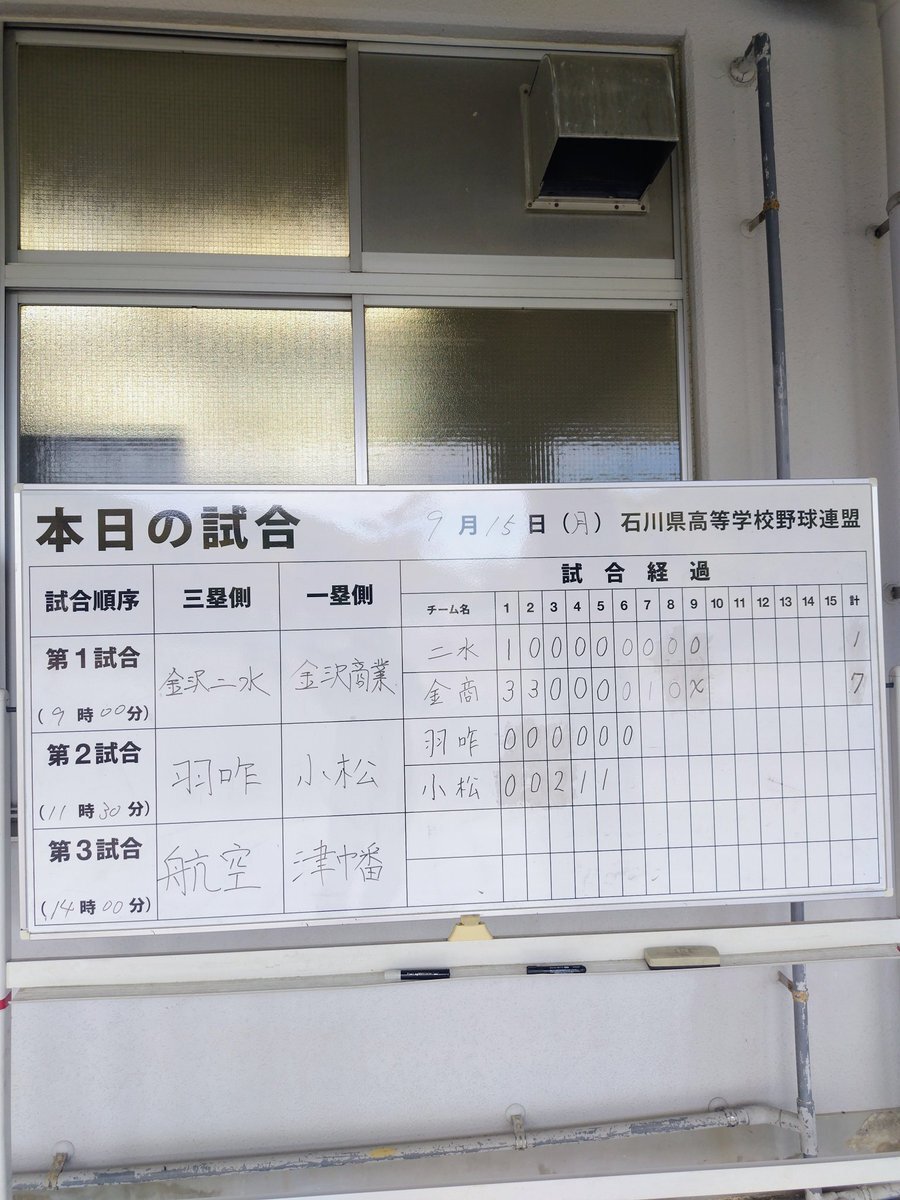 本日の試合 9月15日(月) 石川県高等学校野球連盟
試合順序 三塁側 一塁側 試合経過
チーム名 1 2 3 4 5 6 7 8 9 10 11 12 13 14 15 計
第1試合 (9時00分) 金沢二水 金沢商業
二水 1 0 0 0 0 0 0 0 0 1
金商 3 3 0 0 0 0 1 0 X 7
第2試合 (11時30分) 羽咋 小松
羽咋 0 0 0 0 0 0
小松 0 0 2 1 1
第3試合 (14時00分) 航空 津幡